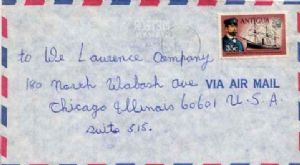 ANTIGUA
35c
to We Laurence Company
180 North Wabash Ave VIA AIR MAIL
Chicago Illinois 60601 U.S.A
Suite 515.